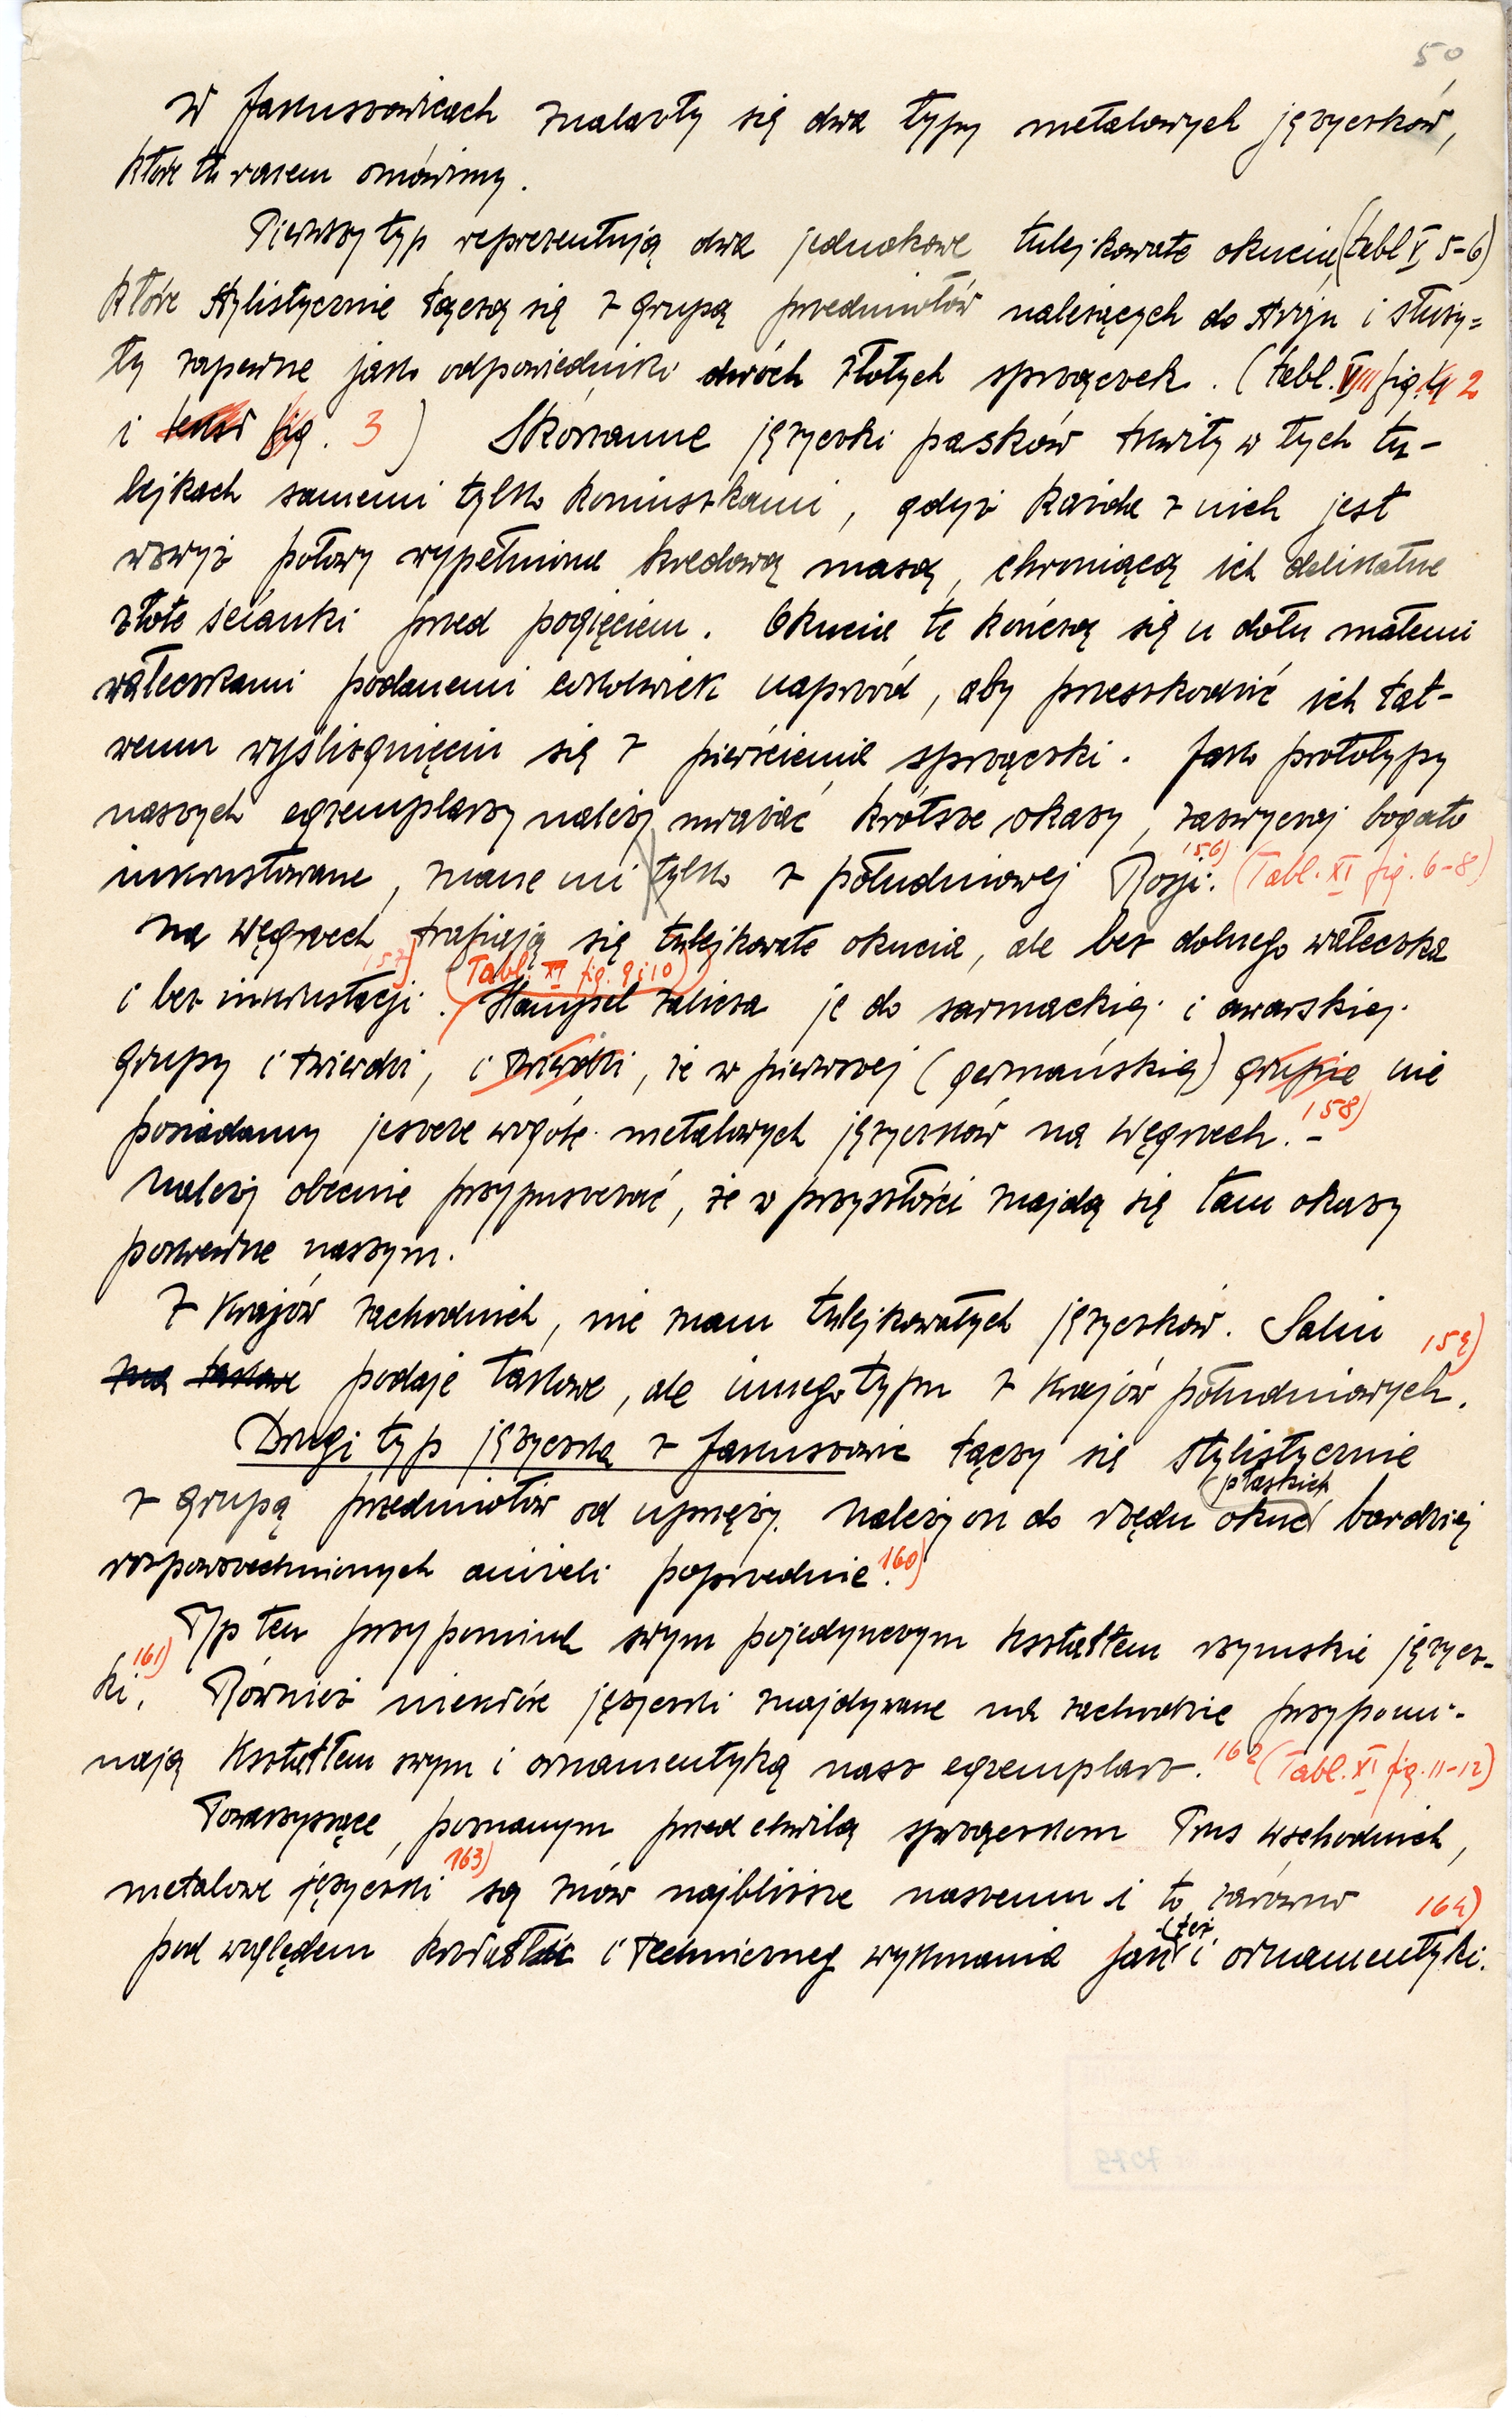 50
W Jakuszowicach znalazły się dwa typy metalowych języczków,
które tu razem omówimy.
Pierwszy typ reprezentują dwa jednakowe tulejkowate okucia (tabl V, 5-6)
które stylistycznie łączą się z grupą przedmiotów należących do stroju i służy=
ły zapewne jako odpowiedniki dwóch złotych sprzączek. (tabl. VIII fig. 2
i fig. 3) Skórzanne języczki pasków tkwiły w tych tu-
lejkach samemi tylko koniuszkami, gdyż każda z nich jest
wzwyż połowy wypełniona kredową masą, chroniącą ich delikatne
złote ścianki przed pogięciem. Okucia te kończą się u dołu małemi
wałeczkami podanemi cokolwiek naprzód, aby przeszkodzić ich łat-
wemu wyślizgnięciu się z pierścienia sprzączki. Jako prototypy
naszych egzemplarzy należy uważać krótsze okazy, zazwyczaj bogato
inkrustowane, znane mi tylko z południowej Rosji. 156) (Tabl. XI fig. 6-8)
Na Węgrzech trafiają się tulejkowate okucia, ale bez dolnego wałeczka
i bez inkrustacji. 157) (Tabl. XI fig. 9 i 10) Hampel zalicza je do sarmackiej i awarskiej
grupy i twierdzi, i twierdzi, że w pierwszej (germańskiej) grupie nie
posiadamy jeszcze wogóle metalowych języczków na Węgrzech. 158) -
Należy obecnie przypuszczać, że w przyszłości znajdą się tam okazy
pokrewne naszym.
Z krajów zachodnich, nie znam tulejkowatych języczków. Salin 159)
podaje takowe, ale innego typu z krajów południowych.
Drugi typ języczka z Jakuszowic łączy się stylistycznie
z grupą przedmiotów od uprzęży. Należy on do rzędu płaskich okuć bardziej
rozpowszechnionych aniżeli poprzednie. 160)
Typ ten przypomina swym pojedynczym kształtem rzymskie języcz-
ki. 161) Również niektóre języczki znajdywane na zachodzie przypomi-
nają kształtem swym i ornamentyką nasz egzemplarz. 162 (Tabl. XI fig. 11-12)
Towarzyszące, poznanym przed chwilą sprzączkom Prus wschodnich,
metalowe języczki 163) są znów najbliższe naszemu i to zarówno 164)
pod względem kształtu i technicznego wykonania jak też i ornamentyki.